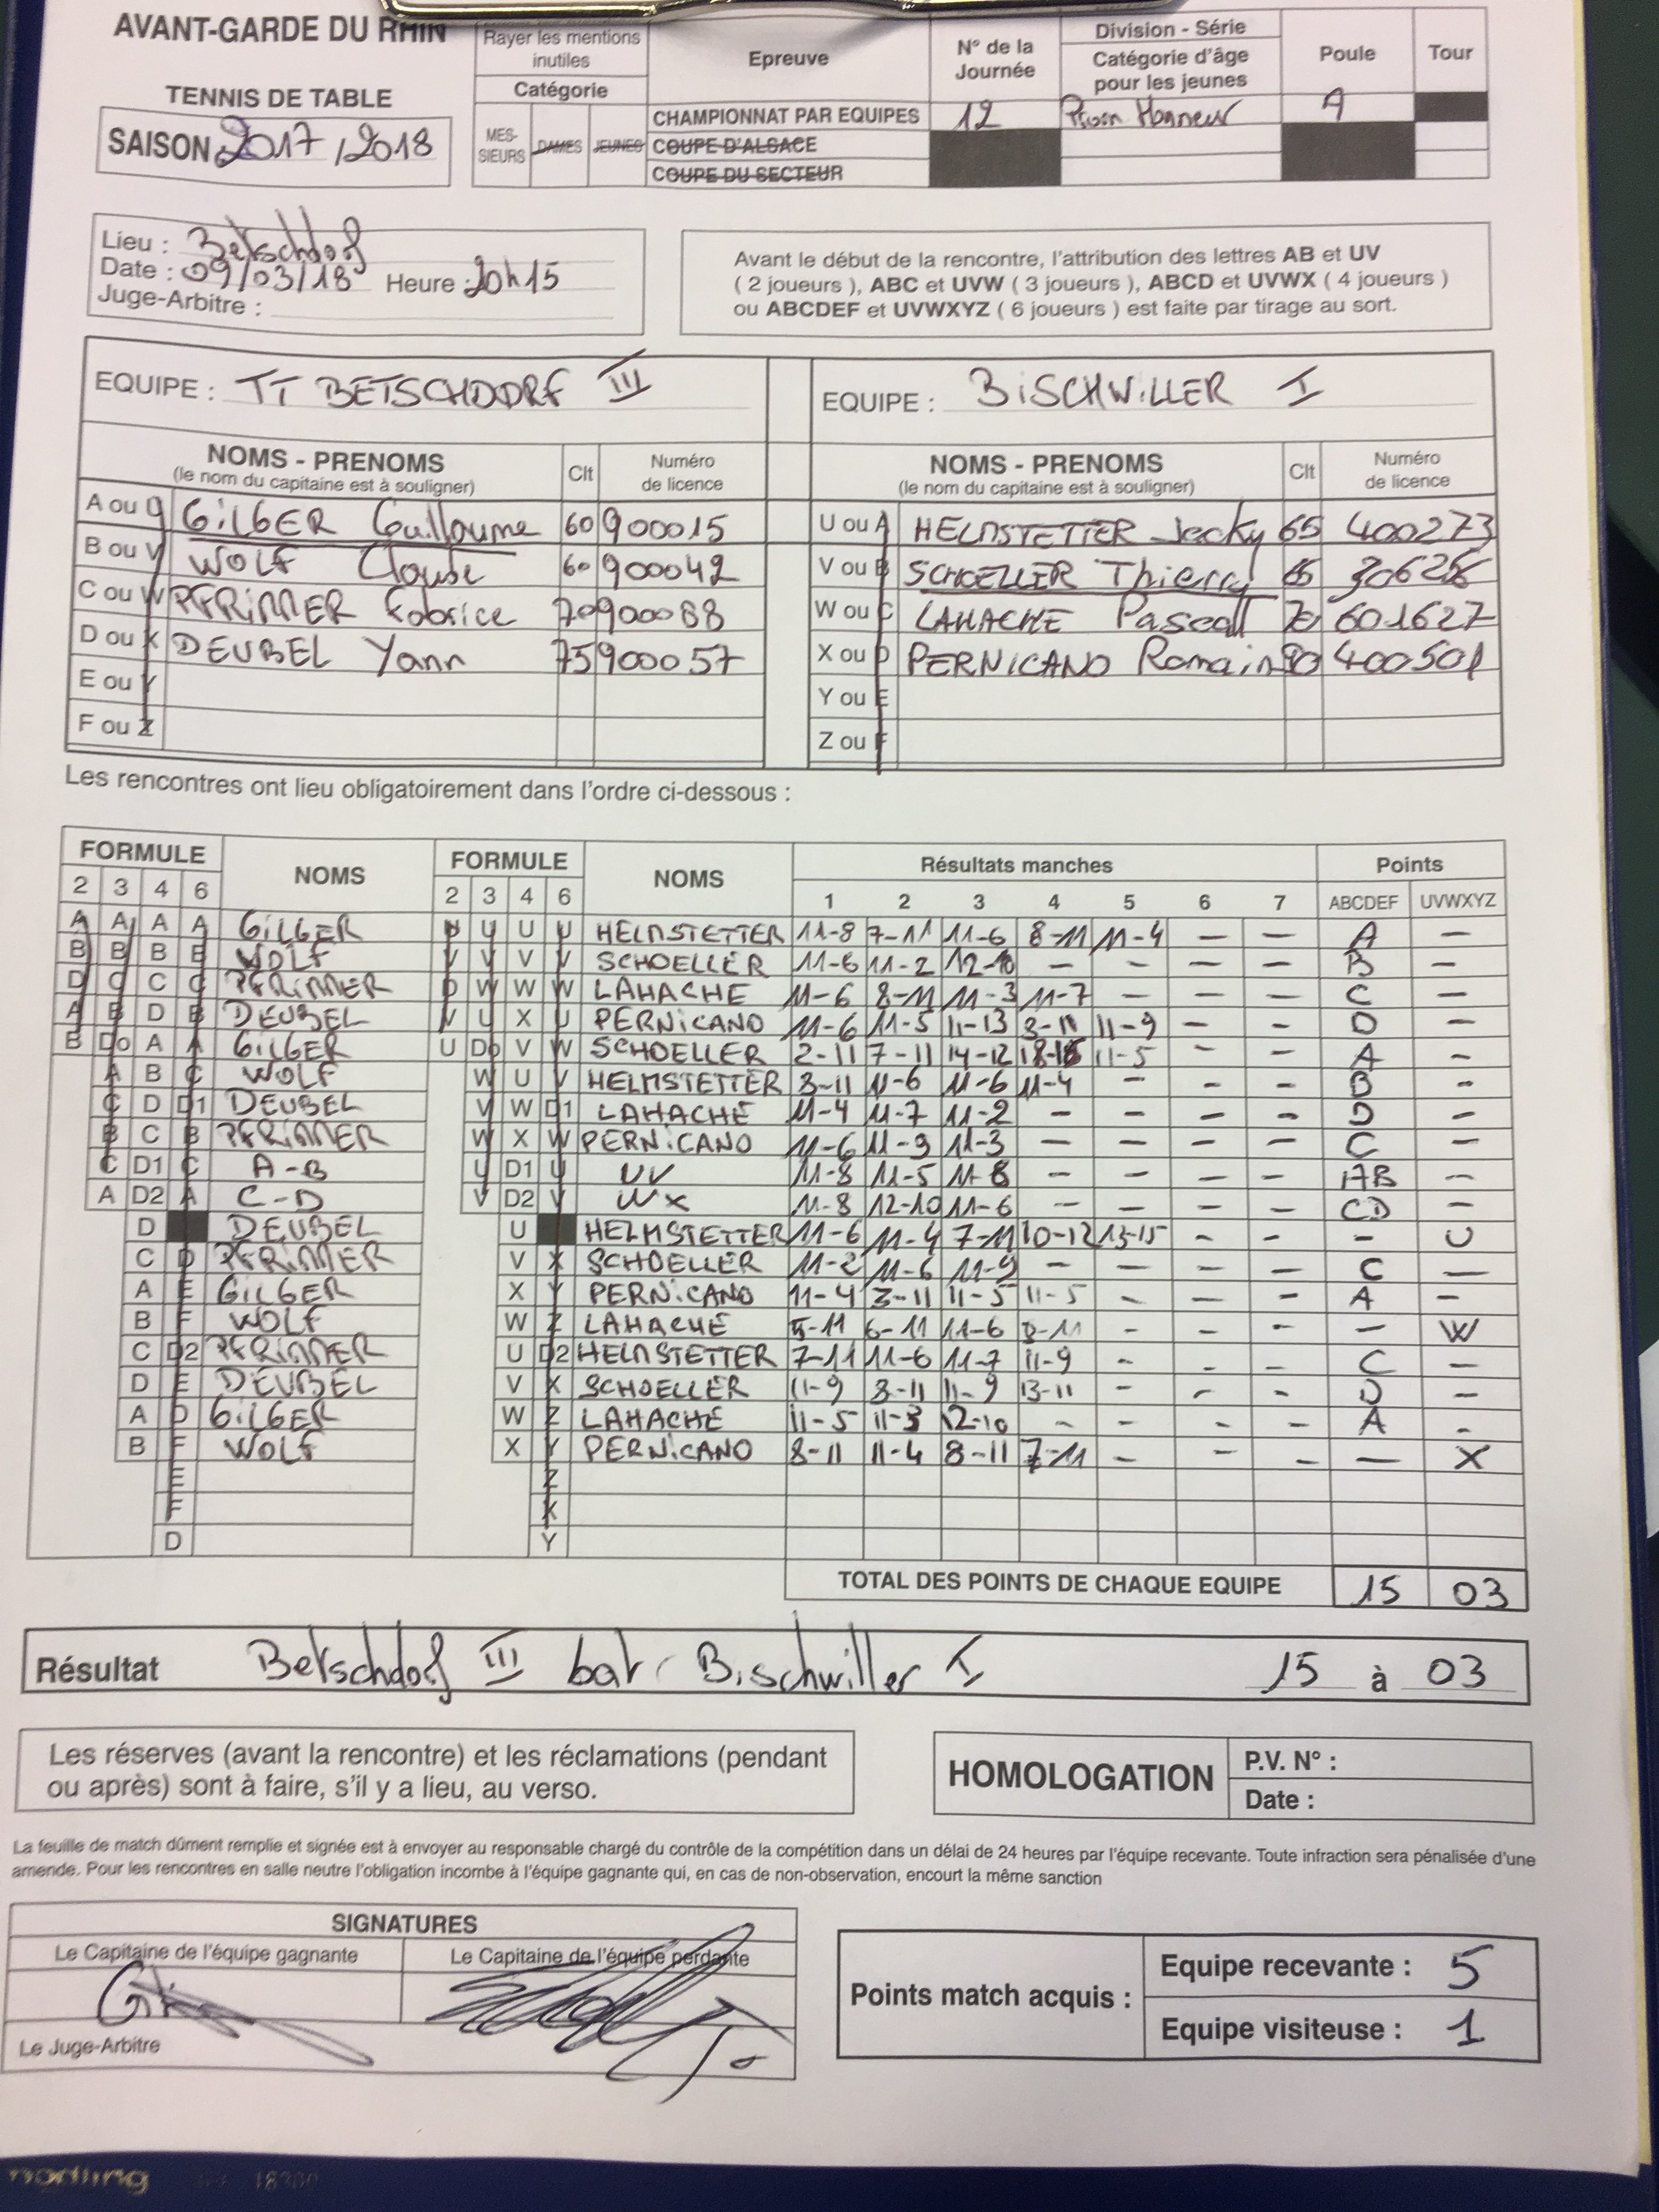 AVANT-GARDE DU RHIN
TENNIS DE TABLE
SAISON 2017/2018
Rayer les mentions inutiles
Catégorie
MES-SIEURS DAMES JEUNES
Epreuve
N° de la Journée
Division - Série
Catégorie d'âge pour les jeunes
Poule
Tour
CHAMPIONNAT PAR EQUIPES 12 Prom Honneur A
COUPE D'ALSACE
COUPE DU SECTEUR
Lieu : Betschdorf
Date : 09/03/18 Heure : 20h15
Juge-Arbitre :
Avant le début de la rencontre, l'attribution des lettres AB et UV
( 2 joueurs ), ABC et UVW ( 3 joueurs ), ABCD et UVWX ( 4 joueurs )
ou ABCDEF et UVWXYZ ( 6 joueurs ) est faite par tirage au sort.
EQUIPE : TT BETSCHDORF III
EQUIPE : BiSCHWiLLER I
NOMS - PRENOMS Clt Numéro
(le nom du capitaine est à souligner) de licence
NOMS - PRENOMS Clt Numéro
(le nom du capitaine est à souligner) de licence
A ou U GiLGER Guillaume 60 900015
B ou V WOLF Claude 60 900042
C ou W PFRiMMER Fabrice 70 900088
D ou X DEUBEL Yann 75 900057
E ou Y
F ou Z
U ou A HELMSTETTER Jacky 65 400273
V ou B SCHOELLER Thierry 65
W ou C LAHACHE Pascal 70 601627
X ou D PERNiCANO Romain 80 400501
Y ou E
Z ou F
Les rencontres ont lieu obligatoirement dans l'ordre ci-dessous :
FORMULE NOMS FORMULE NOMS Résultats manches Points
2 3 4 6 2 3 4 6 1 2 3 4 5 6 7 ABCDEF UVWXYZ
A A A A GiLGER U U U U HELMSTETTER 11-8 7-11 11-6 8-11 11-4 - - A -
B B B B WOLF V V V V SCHOELLER 11-6 11-2 12-10 - - - - B -
D C C C PFRiMMER D W W W LAHACHE 11-6 8-11 11-3 11-7 - - - C -
A B D B DEUBEL V U X U PERNiCANO 11-6 11-5 11-13 3-11 11-9 - - D -
B Do A A GiLGER U Do V W SCHOELLER 2-11 7-11 14-12 18-16 11-5 - - A -
A B C WOLF W U V HELMSTETTER 3-11 11-6 11-6 11-4 - - - B -
C D D1 DEUBEL V W D1 LAHACHE 11-4 11-7 11-2 - - - - D -
B C B PFRiMMER W X W PERNiCANO 11-6 11-9 11-3 - - - - C -
C D1 C A-B U D1 U UV 11-8 11-5 11-8 - - - - AB -
A D2 A C-D V D2 V WX 11-8 12-10 11-6 - - - - CD -
D DEUBEL U HELMSTETTER 11-6 11-4 7-11 10-12 13-15 - - - U
C D PFRiMMER V X SCHOELLER 11-2 11-6 11-9 - - - - C -
A E GiLGER X Y PERNiCANO 11-4 3-11 11-5 11-5 - - - A -
B F WOLF W Z LAHACHE 5-11 6-11 11-6 8-11 - - - - W
C D2 PFRiMMER U D2 HELMSTETTER 7-11 11-6 11-7 11-9 - - - C -
D E DEUBEL V X SCHOELLER 11-9 3-11 11-9 13-11 - - - D -
A D GiLGER W Z LAHACHE 11-5 11-3 12-10 - - - - A -
B F WOLF X Y PERNiCANO 8-11 11-4 8-11 7-11 - - - - X
E Z
F X
D Y
TOTAL DES POINTS DE CHAQUE EQUIPE 15 03
Résultat Betschdorf III bat Bischwiller I 15 à 03
Les réserves (avant la rencontre) et les réclamations (pendant
ou après) sont à faire, s'il y a lieu, au verso.
HOMOLOGATION
P.V. N° :
Date :
La feuille de match dûment remplie et signée est à envoyer au responsable chargé du contrôle de la compétition dans un délai de 24 heures par l'équipe recevante. Toute infraction sera pénalisée d'une
amende. Pour les rencontres en salle neutre l'obligation incombe à l'équipe gagnante qui, en cas de non-observation, encourt la même sanction
SIGNATURES
Le Capitaine de l'équipe gagnante Le Capitaine de l'équipe perdante
Le Juge-Arbitre
Points match acquis :
Equipe recevante : 5
Equipe visiteuse : 1